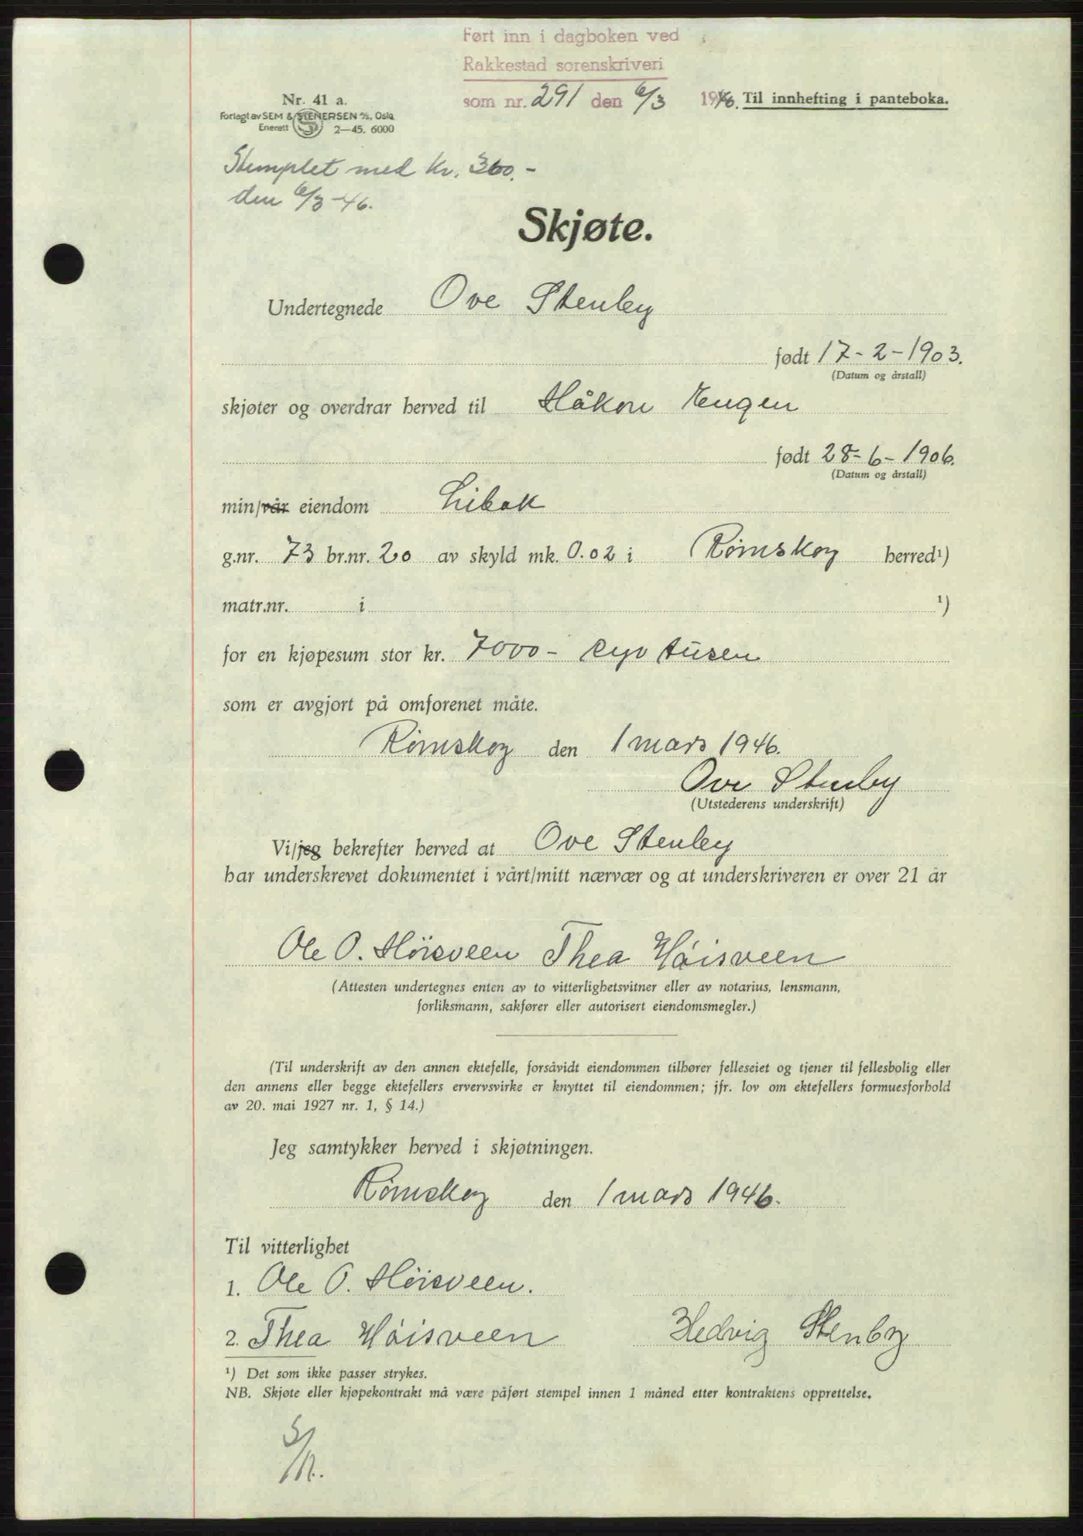 Ført inn i dagboken ved
Rakkestad sorenskriveri
som nr. 291 den 6/3 1946. Til innhefting i panteboka.
Nr. 41 a.
Forlagt av SEM & STENERSEN A/S, Oslo
Enerett 2—45. 6000
Stemplet med kr. 360.-
den 6/3-46.
Skjøte.
Undertegnede Ove Stenby
født 17-2-1903.
(Datum og årstall)
skjøter og overdrar herved til Håkon Engen
født 28-6-1906.
(Datum og årstall)
min/vår eiendom Libak
g.nr. 73 br.nr. 20 av skyld mk. 0.02 i Rømskog herred¹)
matr.nr. i ¹)
for en kjøpesum stor kr. 7000- syv tusen
som er avgjort på omforenet måte.
Rømskog den 1 mars 1946.
Ove Stenby
(Utstederens underskrift)
Vi/jeg bekrefter herved at Ove Stenby
har underskrevet dokumentet i vårt/mitt nærvær og at underskriveren er over 21 år
Ole O. Høisveen Thea Høisveen
(Attesten undertegnes enten av to vitterlighetsvitner eller av notarius, lensmann,
forliksmann, sakfører eller autorisert eiendomsmegler.)
(Til underskrift av den annen ektefelle, forsåvidt eiendommen tilhører felleseiet og tjener til fellesbolig eller
den annens eller begge ektefellers ervervsvirke er knyttet til eiendommen; jfr. lov om ektefellers formuesforhold
av 20. mai 1927 nr. 1, § 14.)
Jeg samtykker herved i skjøtningen.
Rømskog den 1 mars 1946.
Til vitterlighet
1. Ole O. Høisveen.
2. Thea Høisveen Hedvig Stenby
¹) Det som ikke passer strykes.
NB. Skjøte eller kjøpekontrakt må være påført stempel innen 1 måned etter kontraktens opprettelse.